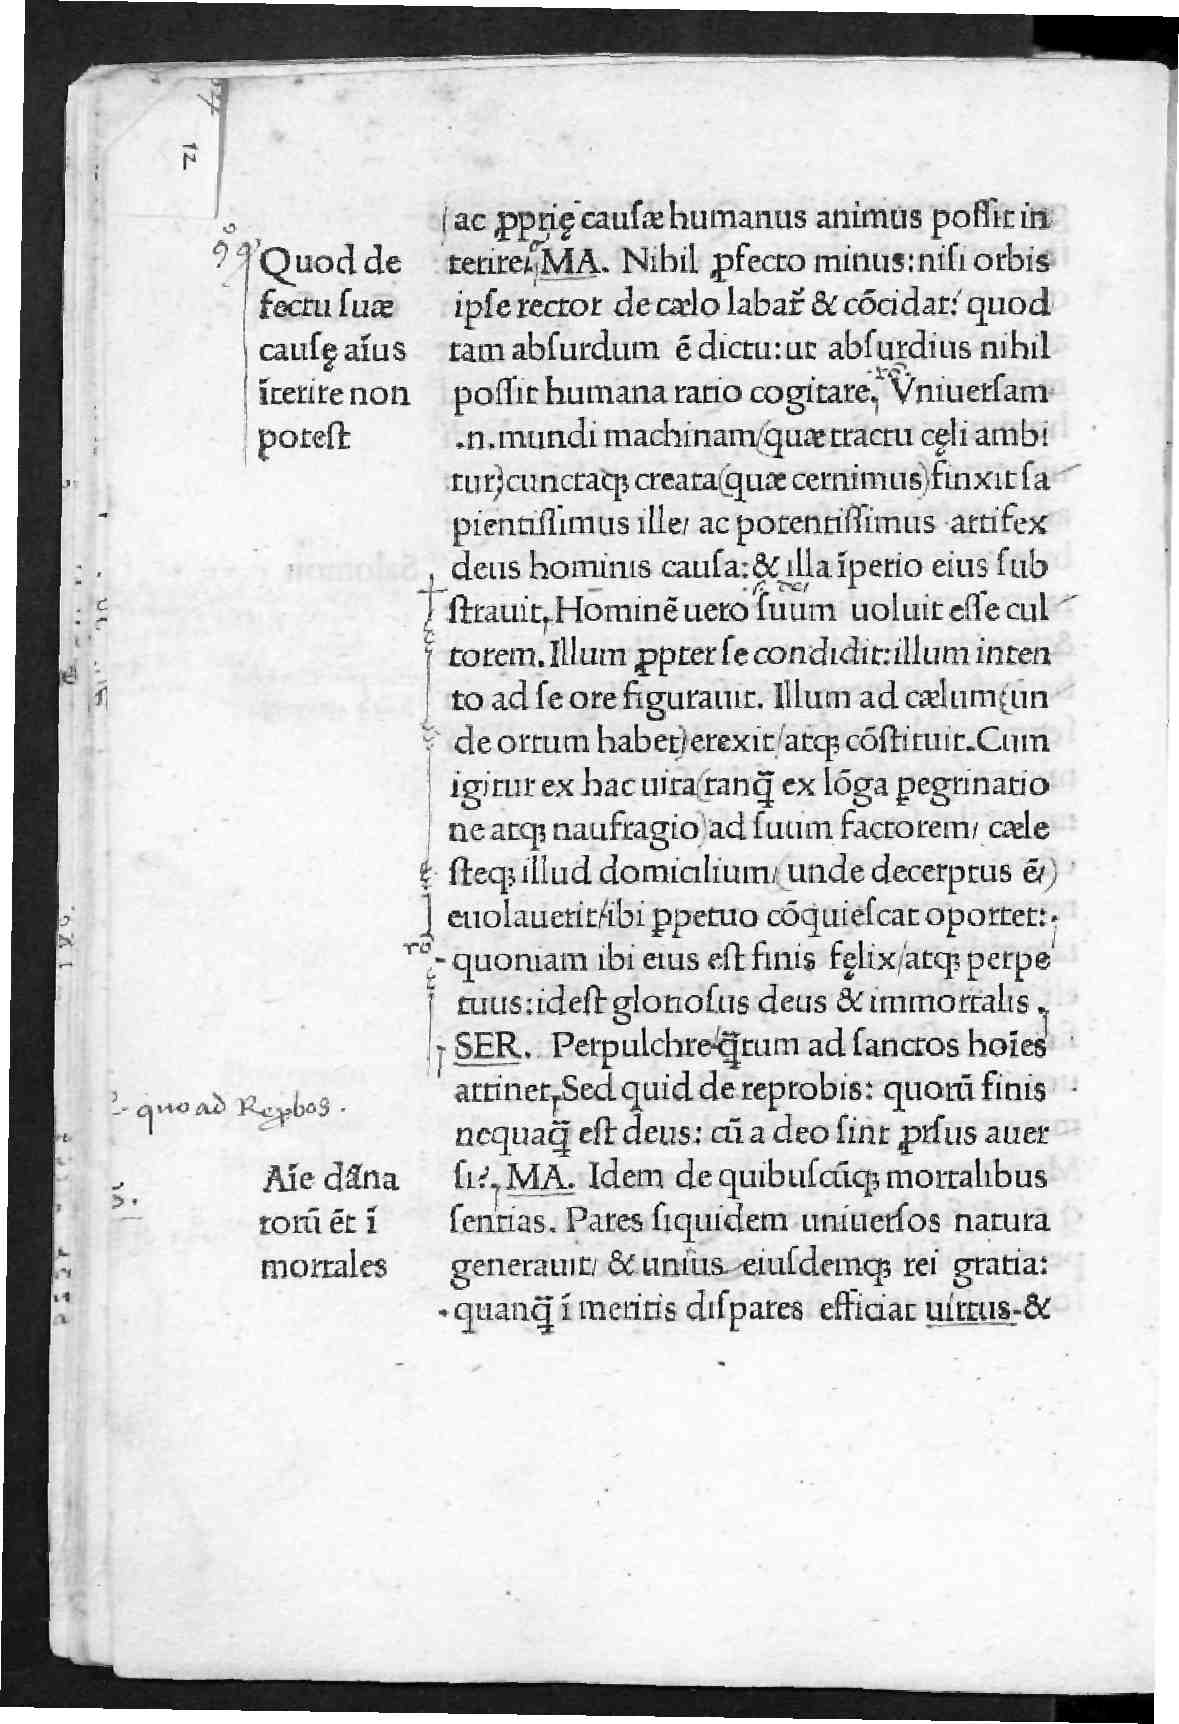 ac ꝓprię cauſæ humanus animus poſſit in
terire? MA. Nihil ꝓfecto minus: niſi orbis
ipſe rector de cælo labat̃ & cōcidat: quod
tam abſurdum ē dictu: ut abſurdius nihil
poſſit humana ratio cogitare, Vniuerſam
.n. mundi machinam (quæ tractu cęli ambi
tur) cunctaqꝫ creata (quæ cernimus) finxit ſa
pientiſſimus ille/ ac potentiſſimus artifex
deus hominis cauſa: & illa īperio eius ſub
ſtrauit, Hominē uero ſuum uoluit eſſe cul
torem. Illum ꝓpter ſe condidit: illum inten
to ad ſe ore figurauit. Illum ad cælum (un
de ortum habet) erexit/ atqꝫ cōſtituit. Cum
igitur ex hac uita (tanq̃ ex lōga ꝑegrinatio
ne atqꝫ naufragio) ad ſuum factorem/ cæle
ſteqꝫ illud domicilium/ (unde decerptus ē/)
euolauerit/ ibi ꝑpetuo cōquieſcat oportet:
quoniam ibi eius eſt finis fęlix/ atqꝫ perpe
tuus: ideſt glorioſus deus & immortalis.
SER. Perpulchre q̃tum ad ſanctos hoīes
attinet, Sed quid de reprobis: quorū finis
nequaq̃ eſt deus: cū a deo ſint ꝓrſus auer
ſi? MA. Idem de quibuſcūqꝫ mortalibus
ſentias. Pares ſiquidem uniuerſos natura
generauit/ & unius eiuſdemqꝫ rei gratia:
quanq̃ ī meritis diſpares efficiat uirtus &
12
Quod de
fectu ſuæ
cauſę aīus
īterire non
poteſt
quo ad Reꝓbos.
Aīe dāna
torū ēt ī
mortales